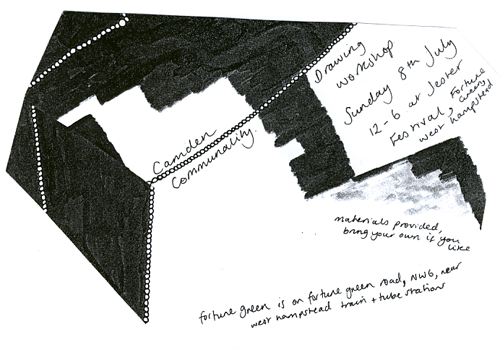 Camden
Communality.
Drawing
workshop
Sunday 8th July
12-6 at Jester
Festival, Fortune
Green,
west hampstead
materials provided,
bring your own if you
like
fortune green is on fortune green road, NW6, near
west hampstead train + tube stations